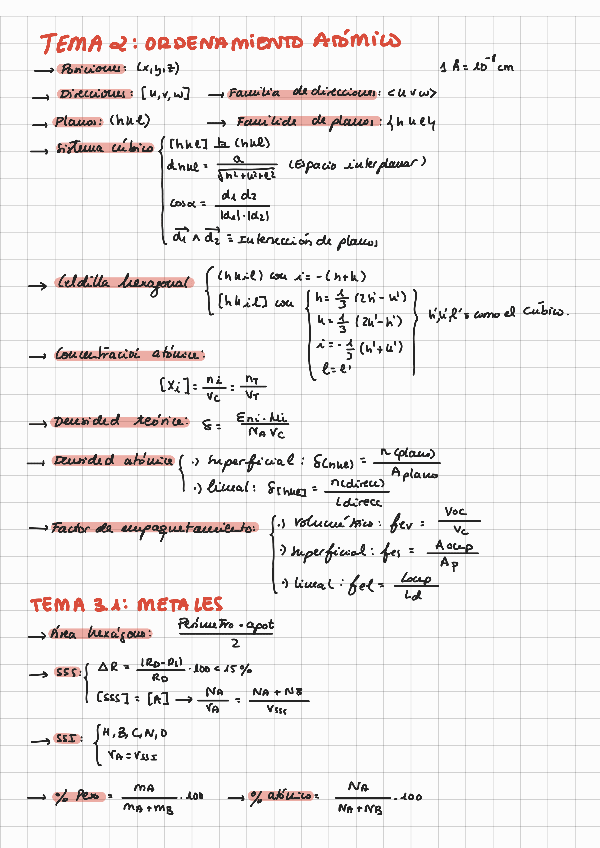 TEMA 2: ORDENAMIENTO ATÓMICO
→ Posiciones: (x,y,z) 1 Å = 10⁻⁸ cm
→ Direcciones: [u,v,w] → Familia de direcciones: <uvw>
→ Planos: (hkl) → Familia de planos: {hkl}
→ Sistema cúbico [hkl] ⊥ (hkl)
dhkl = a / √(h²+k²+l²) (Espacio interplanar)
cosα = d1 d2 / |d1|·|d2|
d1 ∧ d2 = Intersección de planos
→ Celdilla hexagonal (hkil) con i = -(h+k)
[hkil] con h = 1/3 (2h' - k')
k = 1/3 (2k' - h')
i = -1/3 (h' + k')
l = l'
h',k',l' = como el cúbico.
→ Concentració atómica:
[Xi] = ni / Vc = nT / VT
→ Densided teórica: δ = Σni·Mi / NA Vc
→ Densided atómica .) superficial: δ(hkl) = n(plano) / A plano
.) lineal: δ[hkl] = n(direcc) / Ldirecc
→ Factor de empaquetamiento: .) volumétrico: fev = Voc / Vc
.) superficial: fes = A ocup / Ap
.) lineal: fel = Locup / Ld
TEMA 3.1: METALES
→ Área hexágono: Perímetro · apot / 2
→ SSS: ΔR = (RD-Di) / RD · 100 < 15%
[SSS] = [A] → NA / VA = NA + NB / Vsss
→ SSI: H, B, C, N, O
VA = VSSI
→ % Peso = mA / mA + mB · 100 → % atómico = NA / NA + NB · 100